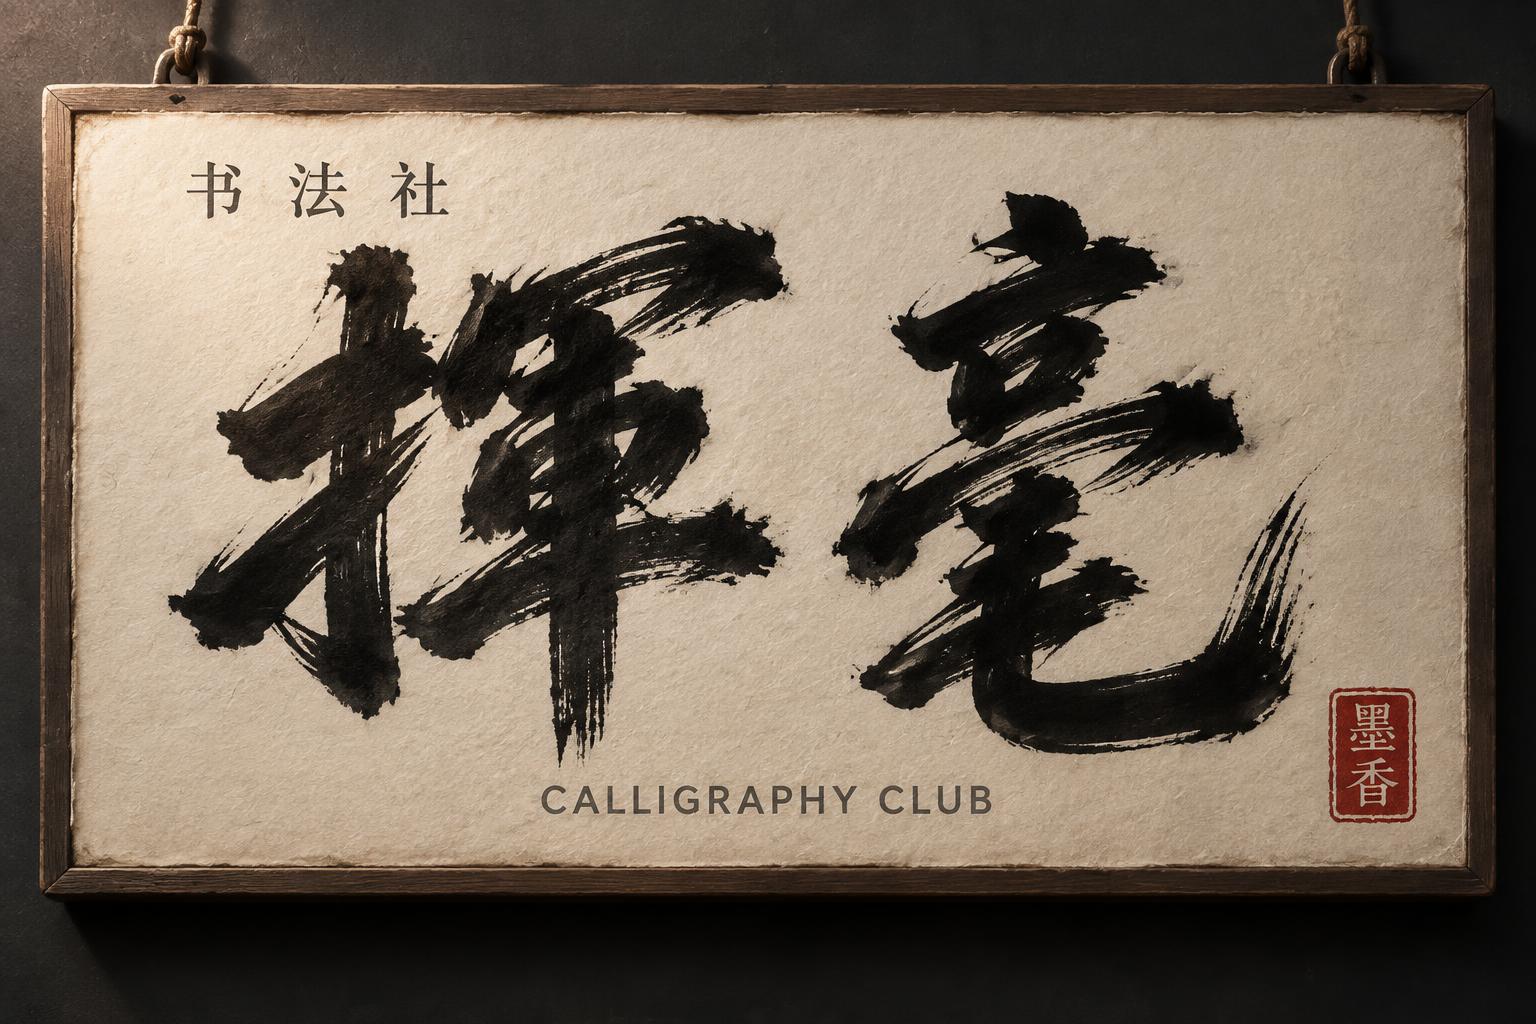 书法社
揮毫
CALLIGRAPHY CLUB
墨香